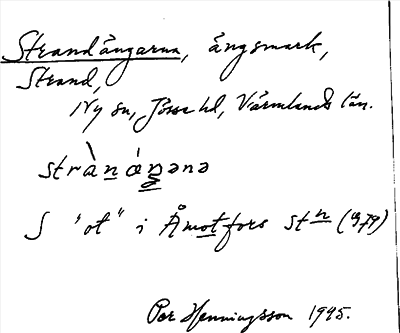 Strandängarna, ängsmark,
Strand,
Ny sn, Jösse hd, Värmlands län.
stràn áŋənə
S "ot" i Åmotfors stn (979)
Per Henningsson 1945.